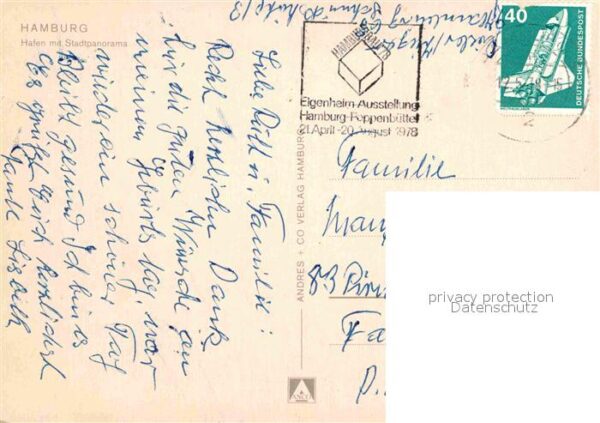 HAMBURG
Hafen mit Stadtpanorama
Liebe Ruth u. Familie!
Recht herzlichen Dank
für die guten Wünsche zu
meinem Geburtstag, war
wieder ein schöner Tag
bleibt gesund Ich bin es
Es grüßt Euch herzlichst
Tante Lisbeth
ANDRES + CO VERLAG HAMBURG
ANCO
HAMBAU 78
Eigenheim-Ausstellung
Hamburg-Poppenbüttel
21. April - 20. August 1978
40
DEUTSCHE BUNDESPOST
Hamburg
Familie
83
privacy protection
Datenschutz